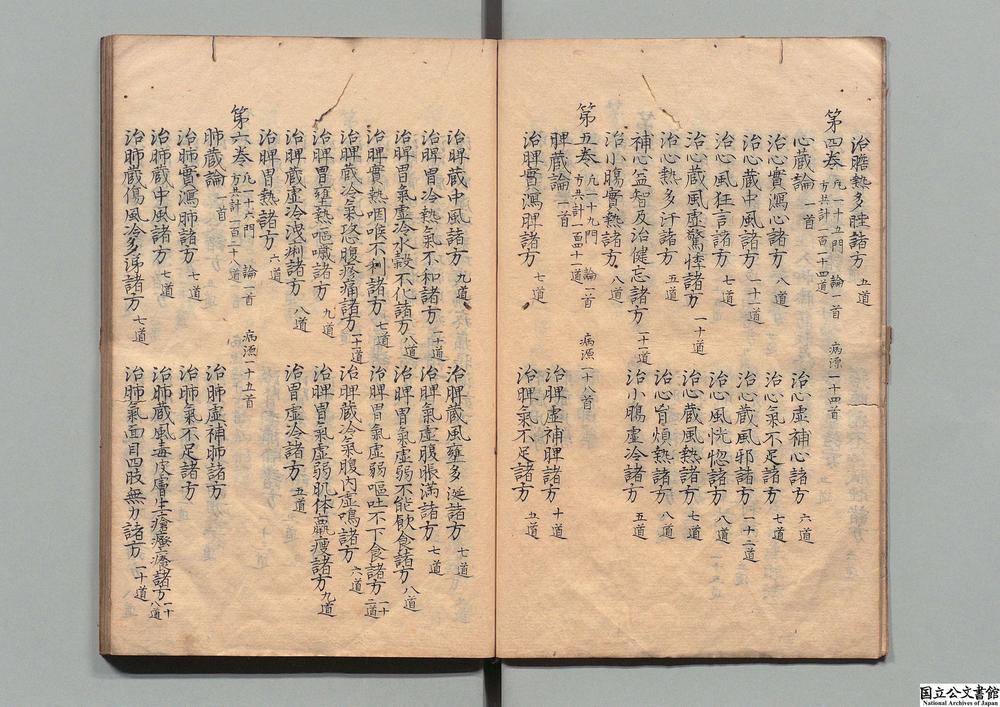 治膽熱多睡諸方 五道
第四卷 凡一十五門 論一首 病源一十四首
方共計一百二十四道
心藏論 一首 治心虛補心諸方 六道
治心實瀉心諸方 八道 治心氣不足諸方 七道
治心藏中風諸方 一十一道 治心藏風邪諸方 一十二道
治心風狂言諸方 七道 治心風恍惚諸方 八道
治心藏風虛驚悸諸方 一十道 治心藏風熱諸方 七道
治心熱多汗諸方 五道 治心胷煩熱諸方 八道
補心益智及治健忘諸方 一十一道 治小腸虛冷諸方 五道
治小腸實熱諸方 八道
第五卷 凡一十九門 論一首 病源一十八首
方共計一百四十一道
脾藏論 一首 治脾虛補脾諸方 十道
治脾實瀉脾諸方 七道 治脾氣不足諸方 五道
治脾藏中風諸方 九道 治脾藏風壅多涎諸方 七道
治脾胃冷熱氣不和諸方 一十道 治脾氣虛腹脹滿諸方 七道
治脾胃氣虛冷水穀不化諸方 八道 治脾胃氣虛弱不能飲食諸方 八道
治脾實熱咽喉不利諸方 七道 治脾胃氣虛弱嘔吐不下食諸方 一十二道
治脾藏冷氣攻腹疼痛諸方 一十道 治脾藏冷氣腹內虛鳴諸方 六道
治脾胃壅熱嘔噦諸方 九道 治脾胃氣虛弱肌体羸瘦諸方 九道
治脾藏虛冷洩痢諸方 八道 治胃虛冷諸方 五道
治脾胃熱諸方 六道
第六卷 凡一十六門 論一首 病源一十五首
方共計一百二十八道
肺藏論 一首 治肺虛補肺諸方
治肺實瀉肺諸方 七道 治肺氣不足諸方
治肺藏中風諸方 七道 治肺藏風毒皮膚生瘡癢諸方 一十八道
治肺藏傷風冷多涕諸方 七道 治肺氣面目四肢無力諸方 一十道
国立公文書館
National Archives of Japan